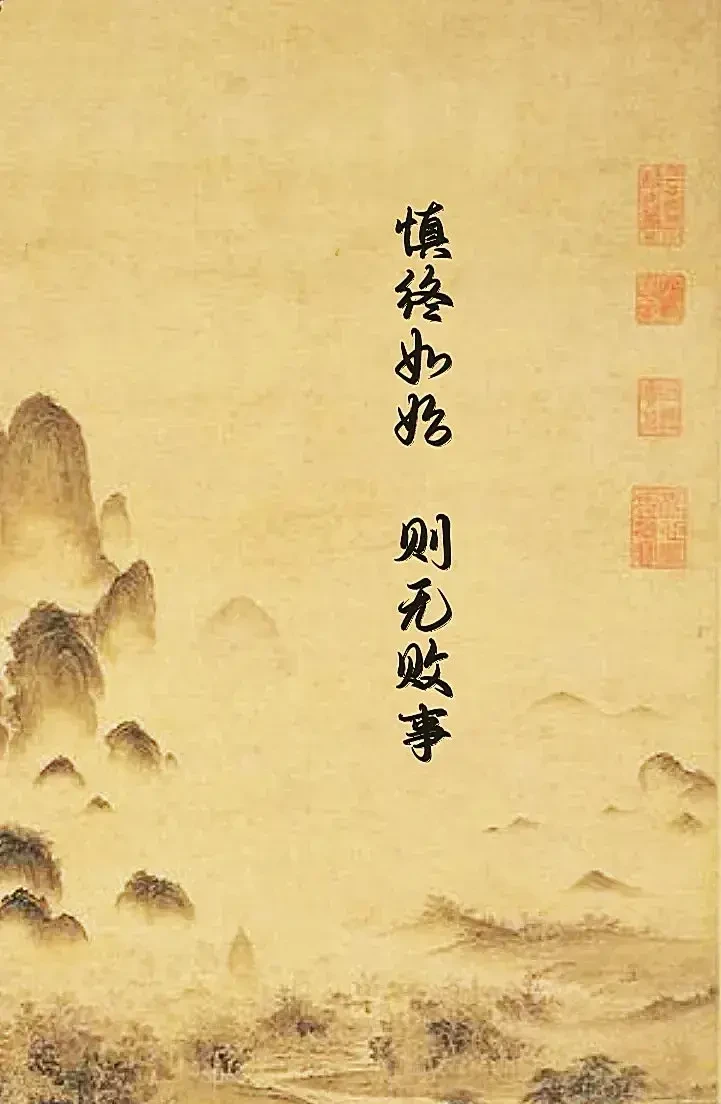 慎终如始 则无败事